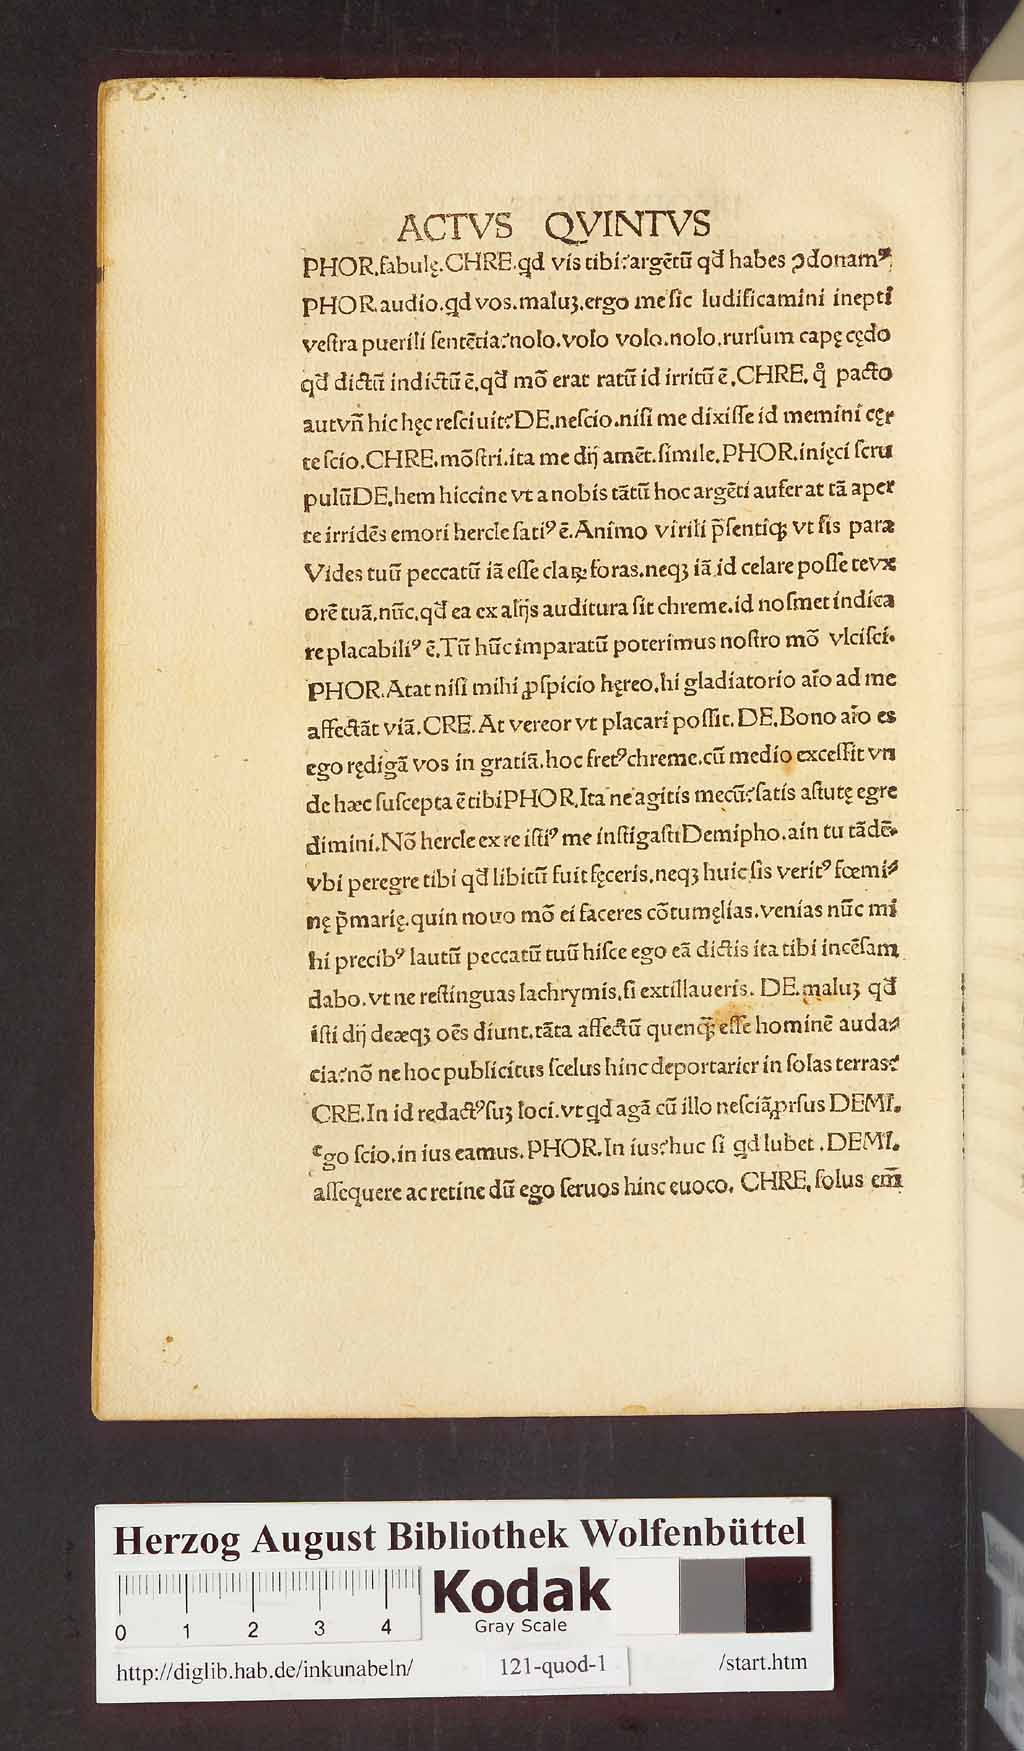 ACTVS QVINTVS
PHOR.fabulę.CHRE.qd vis tibi?argētū qd̄ habes ꝯdonamꝰ.
PHOR.audio.qd vos.maluꝫ.ergo me ſic ludificamini inepti
veſtra puerili ſentētia?nolo.volo volo.nolo.rurſum capę cędo
qd̄ dictū indictū ē,qd̄ mō erat ratū id irritū ē.CHRE. qͦ pacto
aut vñ hic hęc reſciuit?DE.neſcio.niſi me dixiſſe id memini cęr
te ſcio.CHRE.mōſtri.ita me dij amēt.ſimile.PHOR.inięci ſcru
pulūDE.hem hiccine vt a nobis tātū hoc argēti auferat tā aper
te irridēs emori hercle ſatiꝰ ē.Animo virili p̄ſentiqꝫ vt ſis para
Vides tuū peccatū iā eſſe claꝝ foras.neqꝫ iā id celare poſſe te vx
orē tuā.nūc.qd̄ ea ex alijs auditura ſit chreme.id noſmet indica
re placabiliꝰ ē.Tū hūc imparatū poterimus noſtro mō vlciſci.
PHOR.Atat niſi mihi ꝓſpicio hęreo.hi gladiatorio aīo ad me
affectāt viā.CRE.At vereor vt placari poſſit.DE.Bono aīo es
ego rędigā vos in gratiā.hoc fretꝰ chreme.cū medio exceſſit vn
de hæc ſuſcepta ē tibiPHOR.Ita ne agitis mecū?ſatis aſtutę egre
dimini.Nō hercle ex re iſtiꝰ me inſtigaſti Demipho.ain tu tādē.
vbi peregre tibi qd̄ libitū fuit fęceris.neqꝫ huic ſis veritꝰ fœmi⸗
nę p̄marię.quin nouo mō ei faceres cōtumęlias.venias nūc mi
hi precibꝰ lautū peccatū tuū hiſce ego eā dictis ita tibi incēſam
dabo.vt ne reſtinguas lachrymis.ſi extillaueris. DE.maluꝫ qd̄
iſti dij deæqꝫ oēs diunt.tāta affectū quenqꝫ̄ eſſe hominē auda⸗
cia?nō ne hoc publicitus ſcelus hinc deportarier in ſolas terras?
CRE.In id redactꝰ ſuꝫ loci.vt qd agā cū illo neſciā ꝓrſus DEMI.
ego ſcio.in ius eamus.PHOR.In ius?huc ſi qd lubet .DEMI.
aſſequere ac retine dū ego ſeruos hinc euoco. CHRE.ſolus em̄
Herzog August Bibliothek Wolfenbüttel
0 1 2 3 4
Kodak
Gray Scale
http://diglib.hab.de/inkunabeln/ 121-quod-1 /start.htm